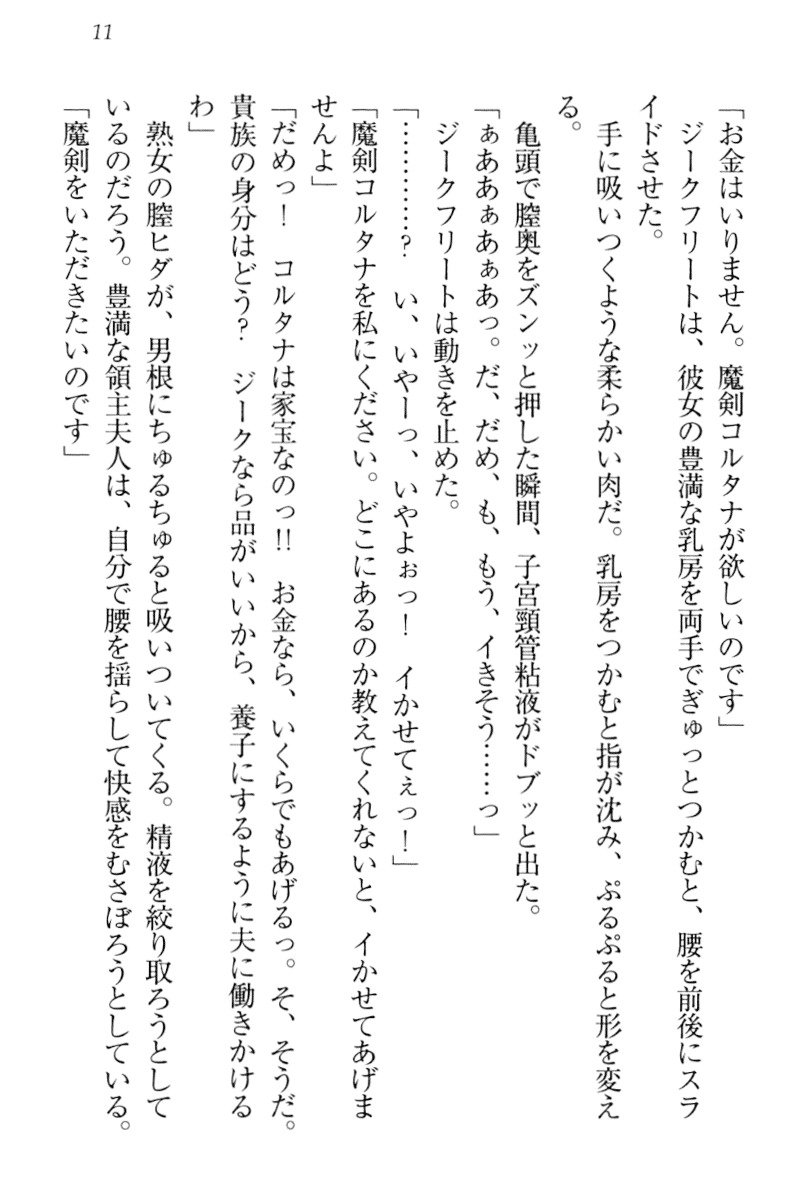 11
「お金はいりません。魔剣コルタナが欲しいのです」
ジークフリートは、彼女の豊満な乳房を両手でぎゅっとつかむと、腰を前後にスラ
イドさせた。
手に吸いつくような柔らかい肉だ。乳房をつかむと指が沈み、ぷるぷると形を変え
る。
亀頭で膣奥をズンッと押した瞬間、子宮頸管粘液がドブッと出た。
「ぁああぁあぁあっ。だ、だめ、も、もう、イきそう……っ」
ジークフリートは動きを止めた。
「…………？　い、いやーっ、いやよぉっ！　イかせてぇっ！」
「魔剣コルタナを私にください。どこにあるのか教えてくれないと、イかせてあげま
せんよ」
「だめっ！　コルタナは家宝なのっ!!　お金なら、いくらでもあげるっ。そ、そうだ。
貴族の身分はどう？　ジークなら品がいいから、養子にするように夫に働きかける
わ」
熟女の膣ヒダが、男根にちゅるちゅると吸いついてくる。精液を絞り取ろうとして
いるのだろう。豊満な領主夫人は、自分で腰を揺らして快感をむさぼろうとしている。
「魔剣をいただきたいのです」